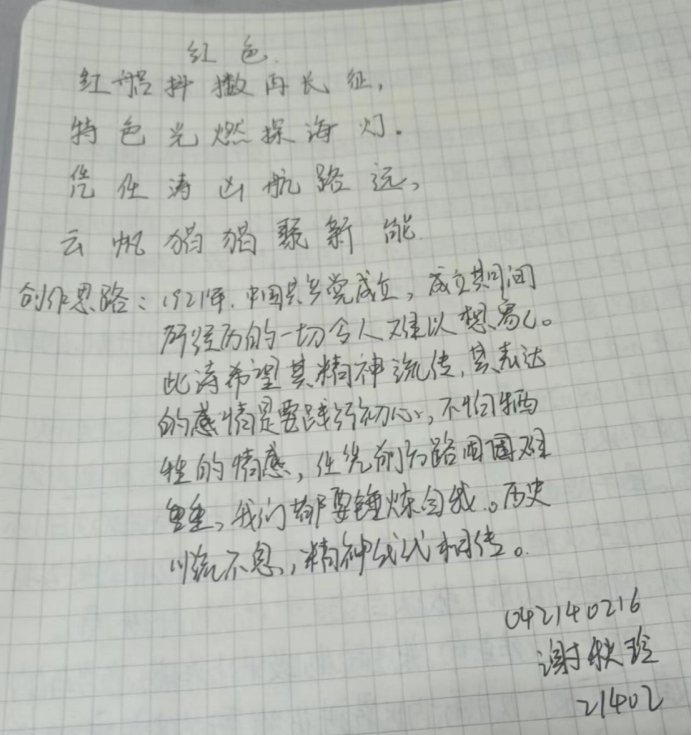 红色.
红船抖擞再长征,
特色光燃探海灯.
凭任涛凶航路远,
云帆猖猖聚新能.
创作思路:1921年.中国共产党成立,成立其间
所经历的一切令人难以想象。
此诗希望其精神流传,其表达
的感情是要践行初心,不怕牺
牲的情感,任凭前方路困难
重重,我们都要锤炼自我。历史
川流不息,精神代代相传。
042140216
谢秋玲
21402